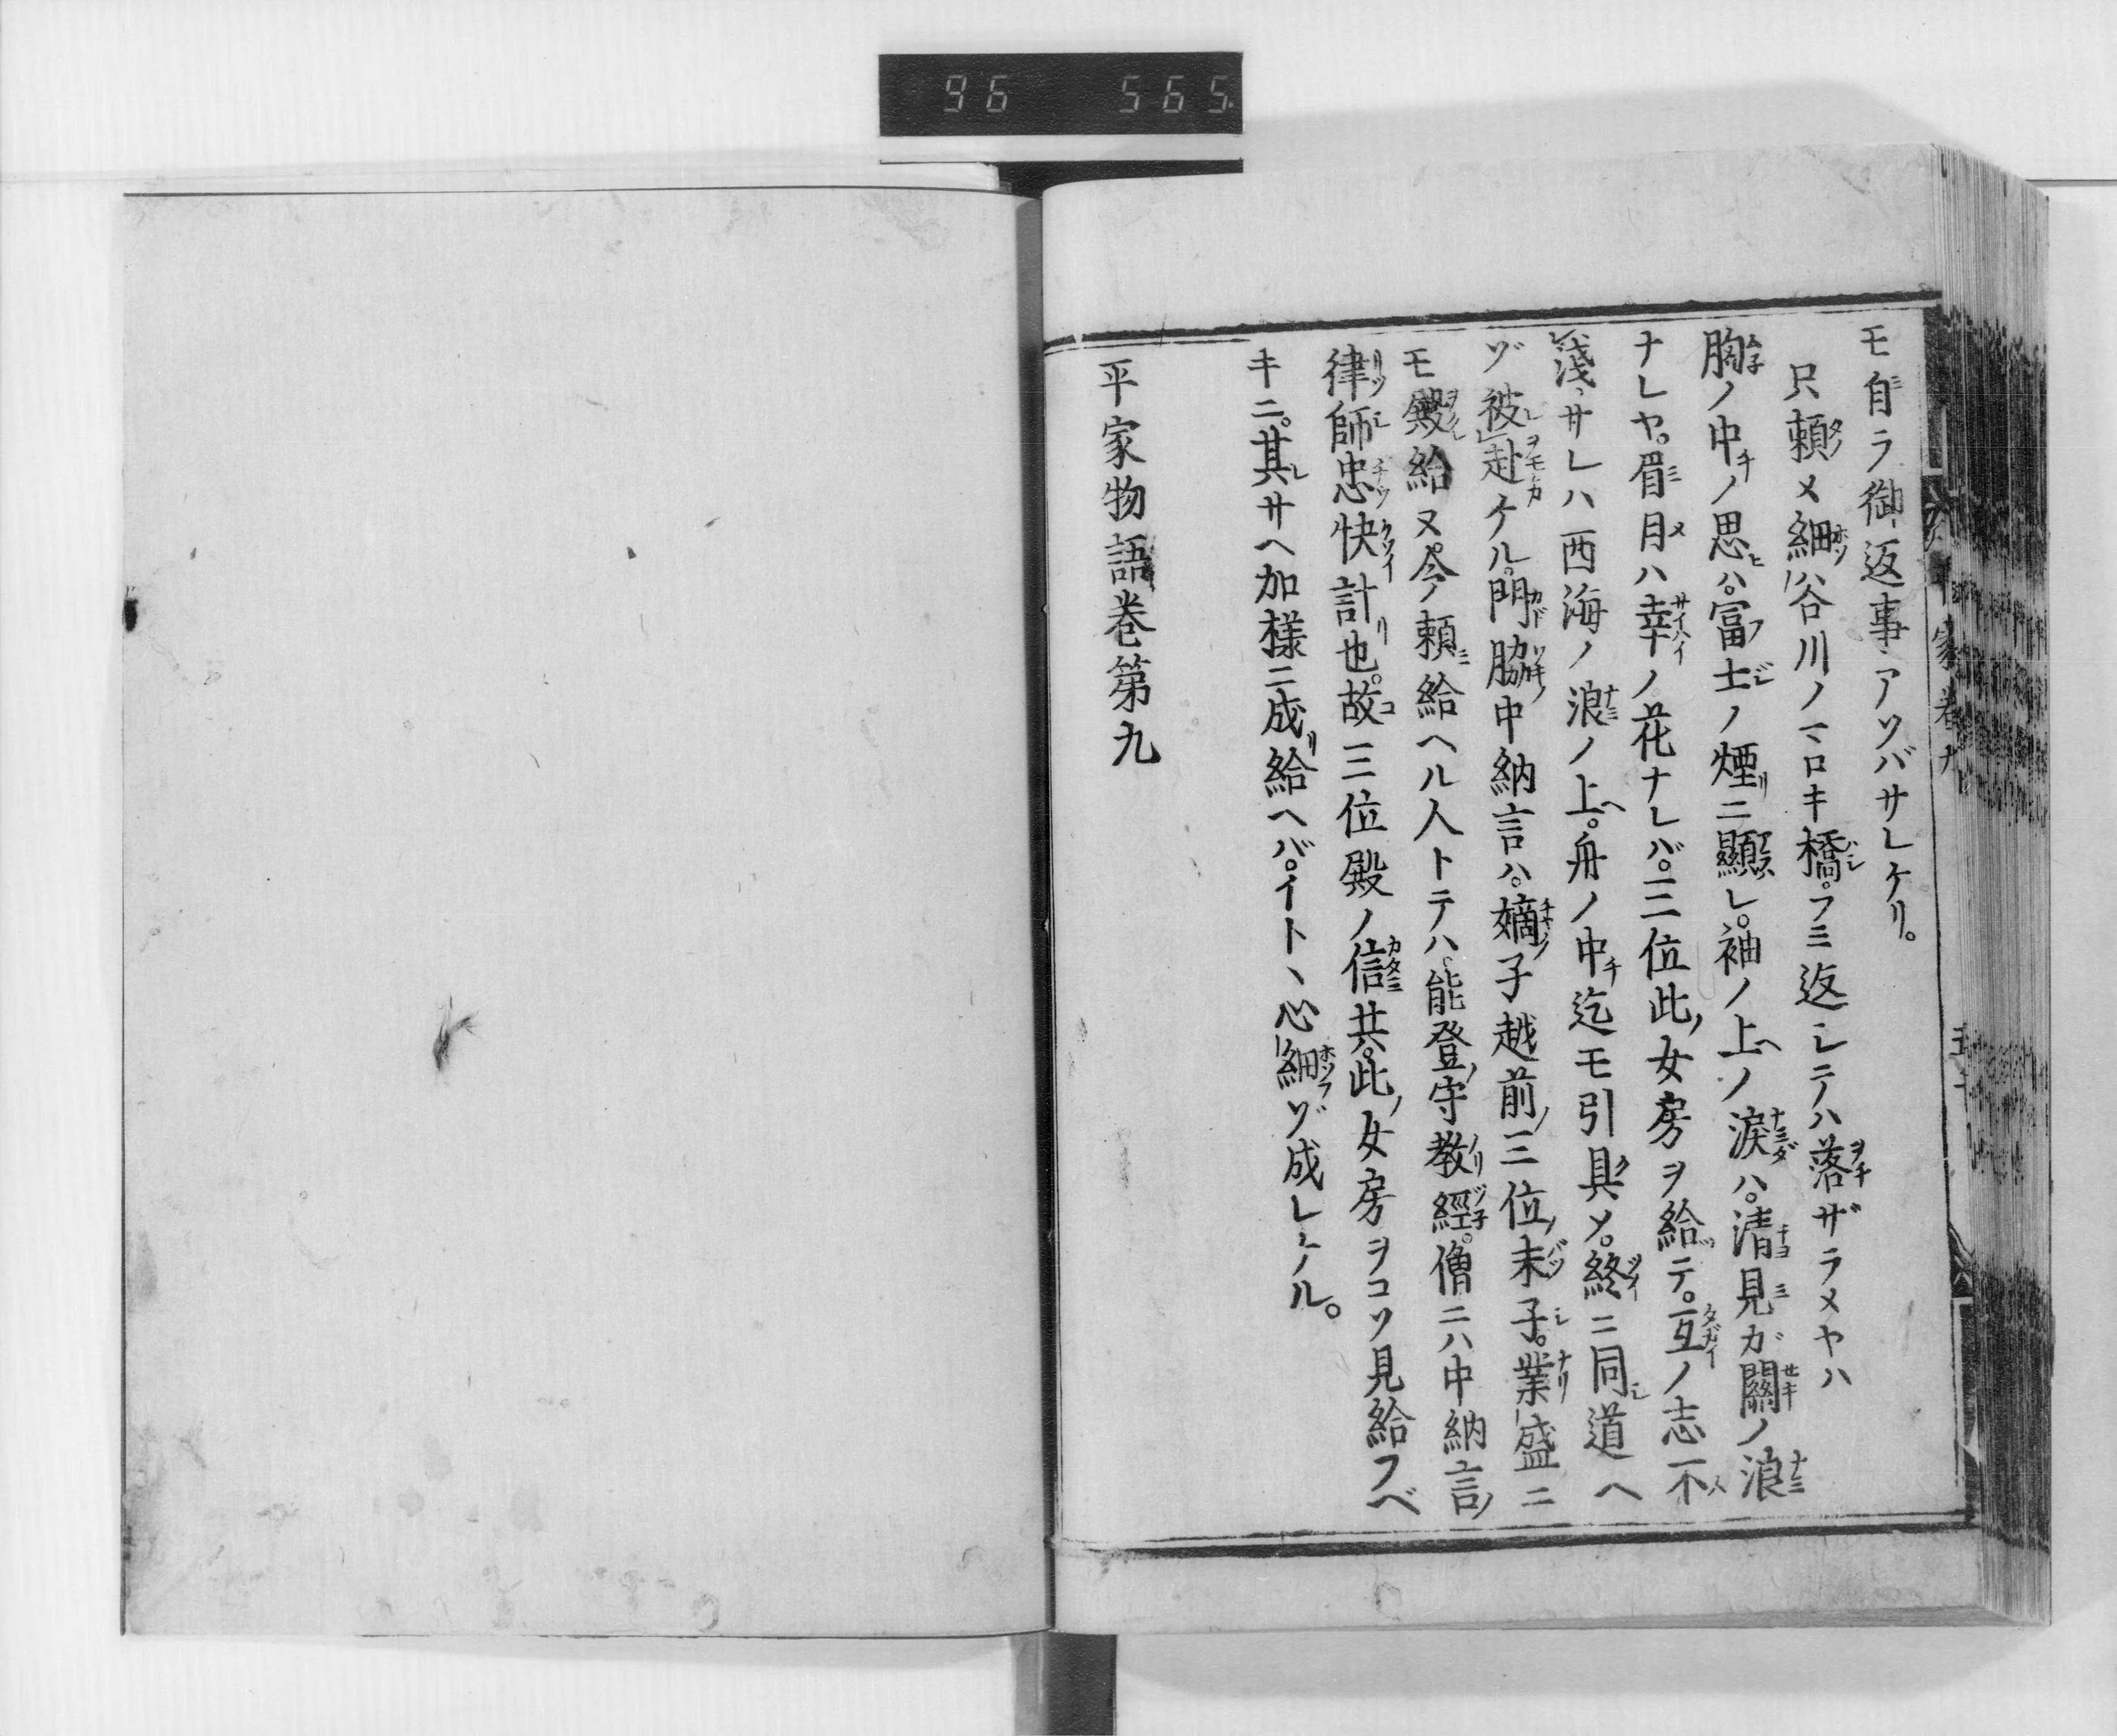 96 565
モ自ラ御返事アソバサレケリ。
只頼メ細谷川ノマロキ橋。フミ返シテハ落ザラメヤハ
胸ノ中ノ思ハ。冨士ノ煙ニ顯レ。袖ノ上ノ涙ハ。清見ガ關ノ浪
ナレヤ。眉目ハ幸ノ花ナレバ。三位此女房ヲ給テ。互ノ志不
淺サレハ西海ノ浪ノ上。舟ノ中迄モ引具メ。終ニ同道ヘ
ゾ被赴ケル。門脇中納言ハ。嫡子越前三位末子。業盛ニ
モ殿給ヌ。今頼給ヘル人トテハ。能登守教經。僧ニハ中納言
律師忠快計也。故三位殿ノ信共。此女房ヲコソ見給フベ
キニ。其サヘ加様ニ成給ヘバ。イトヽ心細ゾ成レケル。
平家物語巻第九